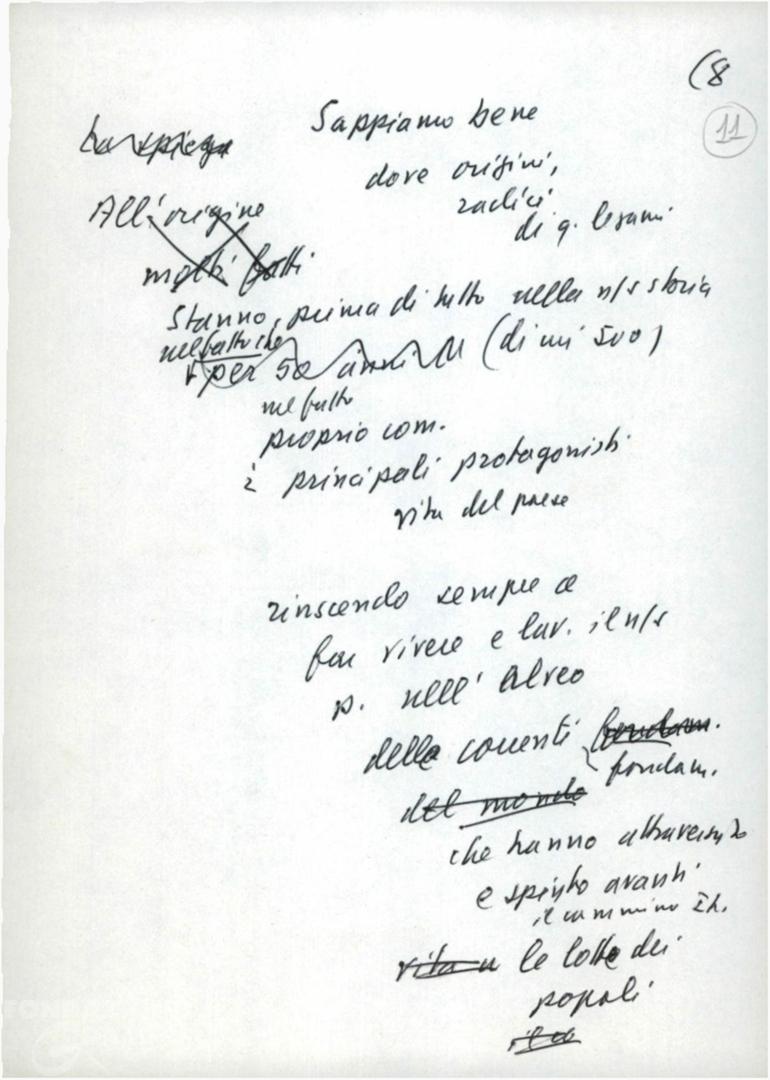 (8
11
Sappiamo bene
La spiega
dove origini,
radici
All'origine
di q. legami
molti fatti
Stanno, prima di tutto nella n/s storia
nel fatto che
per 50 anni (di mi 500)
nel fatto
proprio com.
i principali protagonisti
vita del paese
riuscendo sempre a
far vivere e lav. il n/s
p. nell' alveo
delle correnti fondam.
fondam.
del mondo
che hanno attraversato
e spinto avanti
il cammino
vita u le lotte dei
popoli